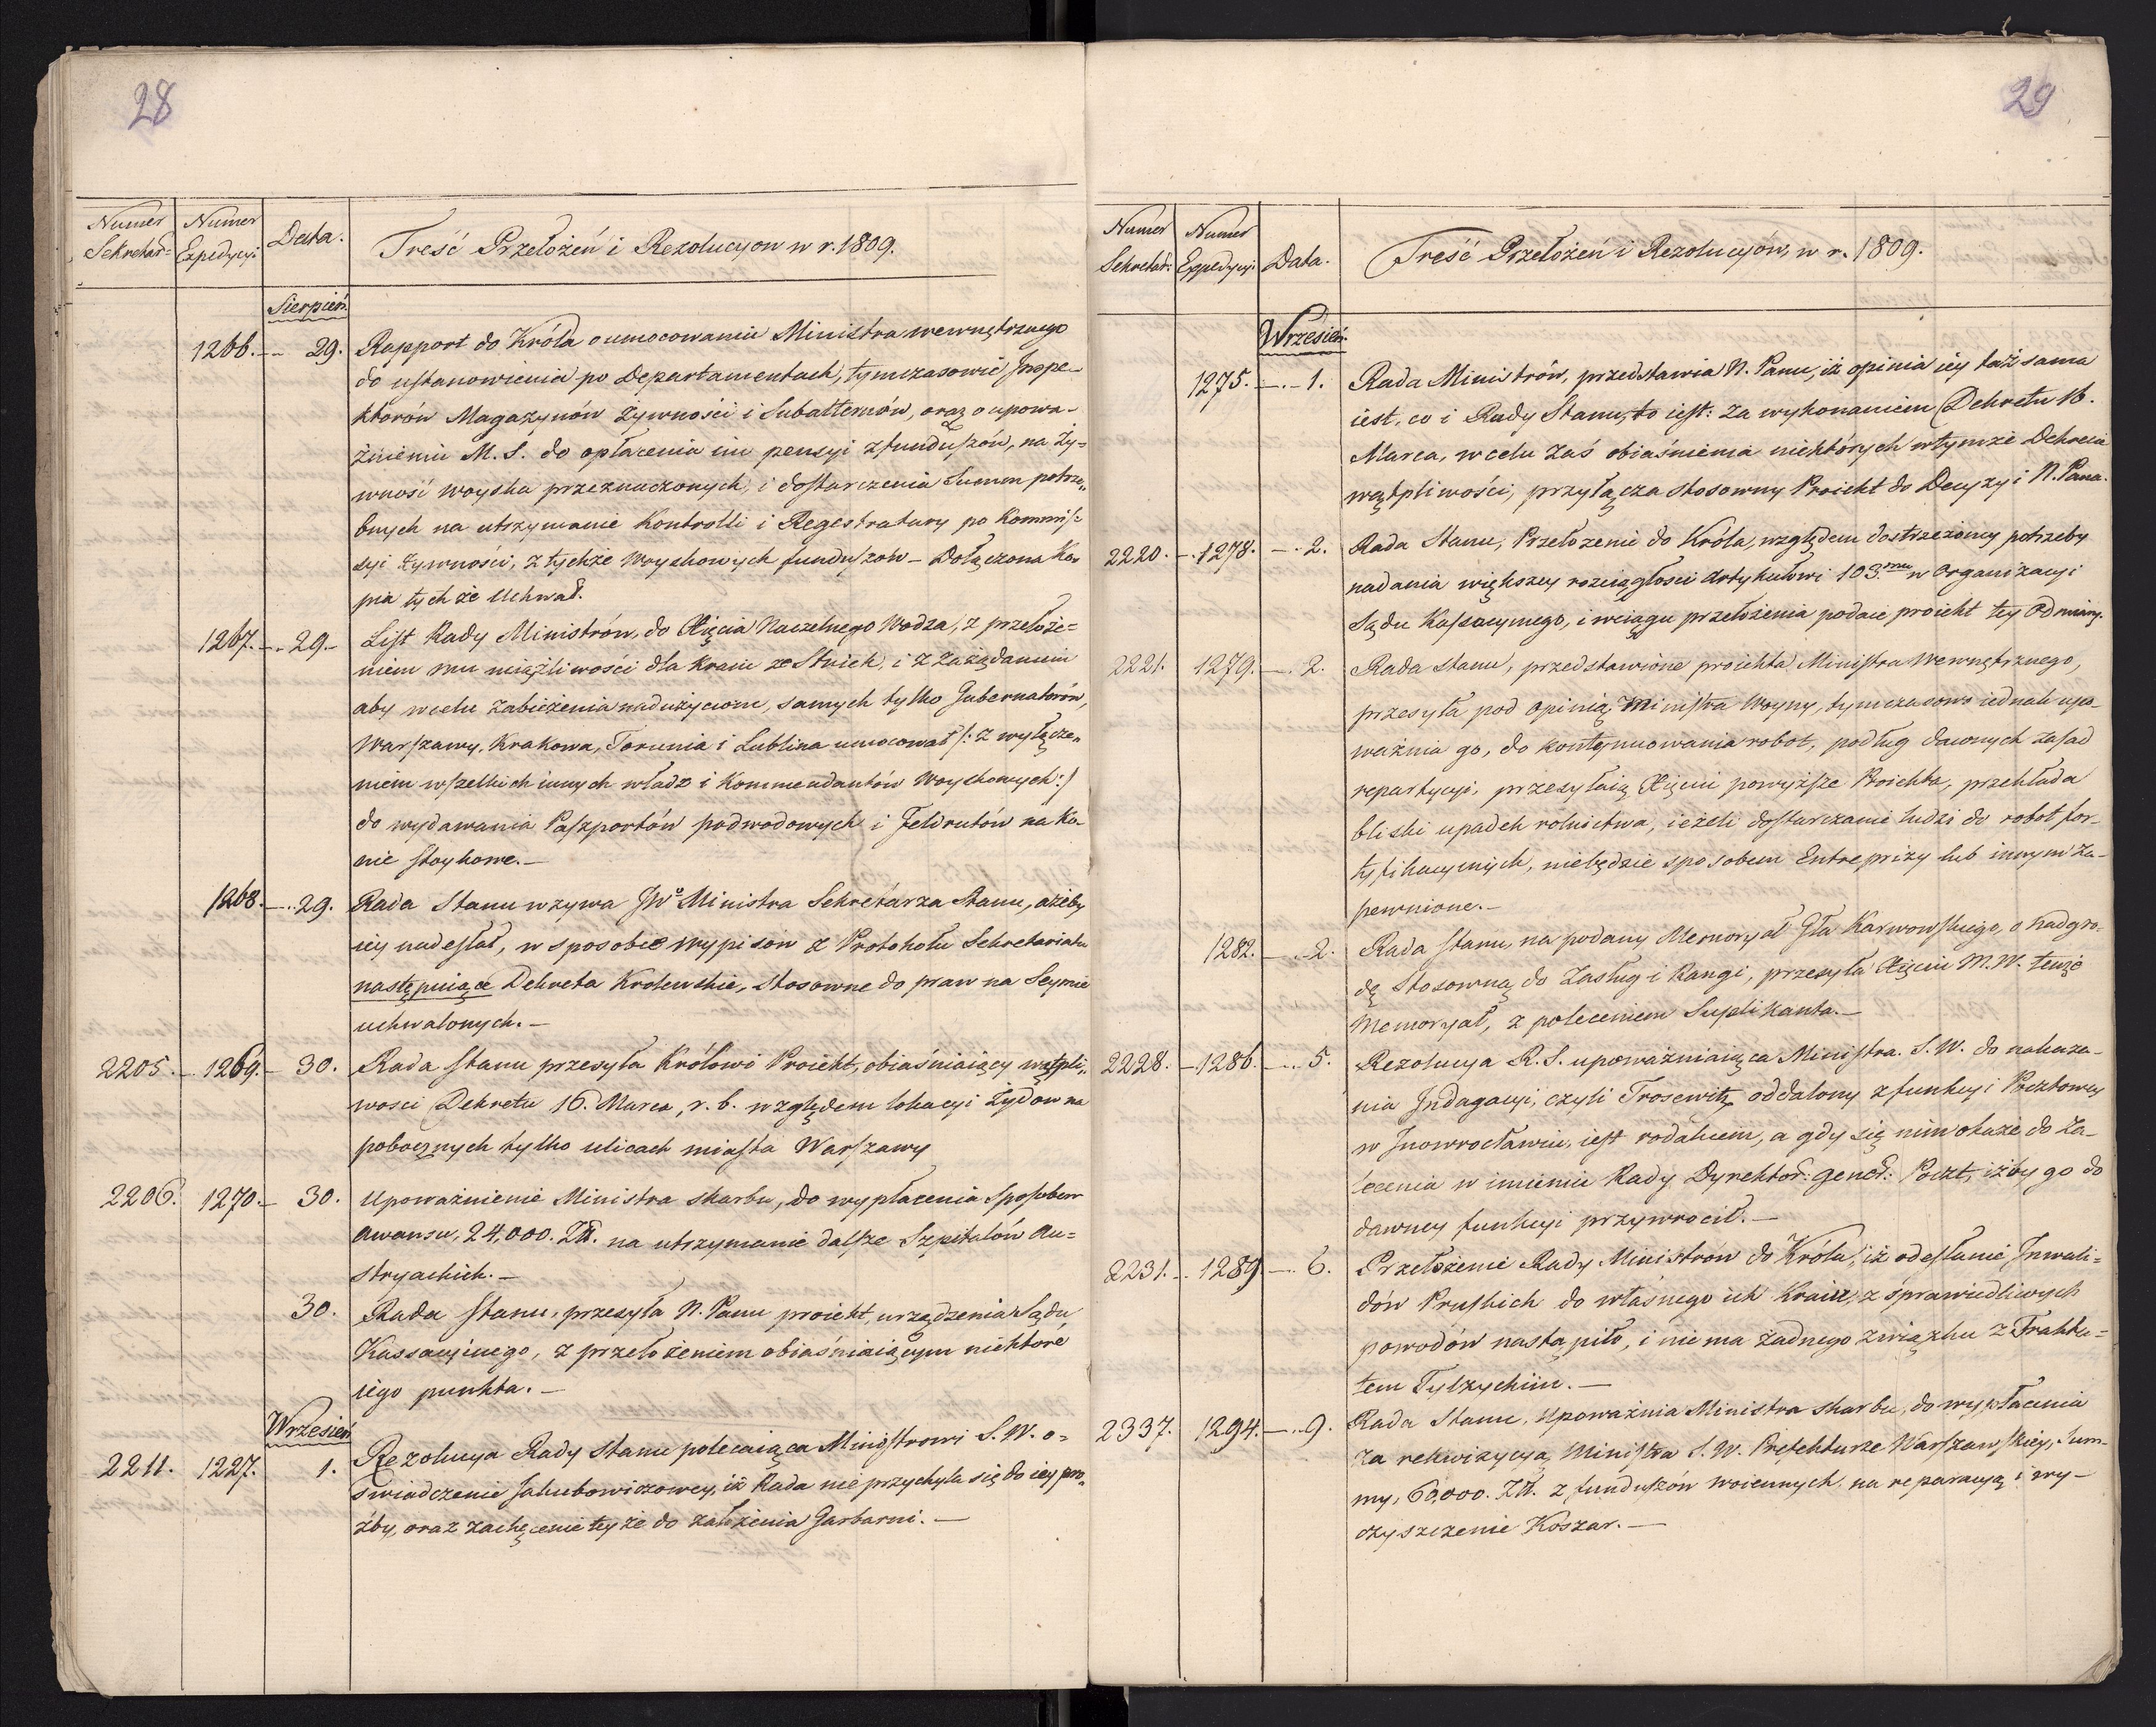 28
Numer Sekretar: Numer Expedycyi Data. Treść Przełożeń i Rezolucyow w r. 1809.
Sierpień
1266. 29. Rapport do Króla o umocowaniu Ministra wewnętrznego
do ustanowienia po Departamentach, tymczasowie Inspe-
ktorów Magazynów Żywności i Subalternów, oraz o upowa-
żnieniu M. S. do opłacenia im pensyi z funduszów, na ży=
wność woyska przeznaczonych, i dostarczenia Summ potrze„
bnych na utrzymanie Kontrolli i Regestratury po Kommis=
syi żywności, z tychże Woyskowych funduszow – Dołączona Ko„
pia tychże Uchwał.
1267. 29. List Rady Ministrów, do Xięcia Naczelnego Wodza, z przełoże=
niem mu uciążliwości dla Kraiu ze Stuiek, i z zażądaniem
aby w celu zabieżenia nadużyciom, samych tylko Gubernatorów,
Warszawy, Krakowa, Torunia i Lublina umocował /: z wyłącze„
niem wszelkich innych władz i Kommendantów Woyskowych :/
do wydawania Paszportów podwodowych i Feldrutów na Ko-
nie stoykowe. –
1268. 29. Rada Stanu wzywa JWo Ministra Sekretarza Stanu, ażeby
iey nadesłał, w sposobie wypisów z Protokołu Sekretariatu
następuiące Dekreta Krolewskie, stosowne do praw na Seymie
uchwalonych. –
2205. 1269. 30. Rada Stanu przesyła Królowi Proiekt, obiaśniaiący wątpli„
wosci Dekretu 16. Marca, r. b. względem lokacyi Żydow na
pobocznych tylko ulicach miasta Warszawy
2206. 1270. 30. Upoważnienie Ministra skarbu, do wypłacenia sposobem
Awansu, 24,000. Zł. na utrzymanie dalsze Szpitalów Au=
stryackich. –
30. Rada Stanu, przesyła N. Panu proiekt, urządzenia Sądu
Kassacyinego, z przełożeniem obiaśniaiącym niektóre
iego punkta. –
Wrzesień
2211. 1227. 1. Rezolucya Rady Stanu polecaiąca Ministrowi S. W. o=
świadczenie Jakubowiczowey, iż Rada nie przychyla się do iey pro„
źby, oraz zachęcenie teyże do założenia Garbarni. –
29
Numer Sekretar: Numer Expedycyi Data. Treść Przełożeń i Rezolucyów, w r. 1809.
Wrzesień.
1275. 1. Rada Ministrów, przedstawia N. Panu, iż opinia iey taż sama
iest, co i Rady Stanu, to iest: za wykonaniem Dekretu 16.
Marca, w celu zaś obiaśnienia niektórych w tymże Dekrecie
wątpliwości, przyłącza stosowny Proiekt do Decyzyi N. Pana.
2220. 1278. 2. Rada Stanu, Przełożenie do Króla, względem dostrzeżoney potrzeby
nadania większey rozciągłości Artykułowi 103.mu w Organizacyi
Sądu Kassacyinego, i wciągu przełożenia podaie proiekt tey odmiany.
2221. 1279. 2. Rada Stanu, przedstawione proiekta Ministra Wewnętrznego,
przesyła pod opinią Ministra Woyny, tymczasowo iednak upo-
ważnia go, do kontynuowania robot, podług dawnych zasad
repartycyi, przesyłaią Xięciu powyższe Proiekta, przekłada
bliski upadek rolnictwa, ieżeli dostarczanie ludzi do robot for-
tyfikacyinych, niebędzie sposobem Entreprizy lub innym za-
pewnione. –
1282. 2. Rada Stanu, na podany Memoryał Gła Karwowskiego, o nadgro-
dę stosowną do Zasług i Rangi, przesyła Xięciu M. W. tenże
Memoryał, z poleceniem Suplikanta. –
2228. 1286. 5. Rezolucya R. S. upoważniaiąca Ministra. S. W. do nakaza-
nia Indagacyi, czyli Trosewitz oddalony z funkcyi Pocztowey
w Jnowrocławiu, iest rodakiem, a gdy się nim okaże do za-
lecenia w imieniu Rady Dyrektor: Gener: Poczt, iżby go do
dawney funkcyi przywrocił. –
2231. 1289. 6. Przełożenie Rady Ministrów do Króla, iż odesłanie Inwali=
dów Pruskich do własnego ich Kraiu, z sprawiedliwych
powodów nastąpiło, i nie ma żadnego związku z Trakta=
tem Tylżyckim. –
2337. 1294. 9. Rada Stanu, Upoważnia Ministra skarbu, do wypłacenia
za rekwizycyą Ministra S. W. Prefekturze Warszawskiey, Sum-
my, 60,000. Zł. z funduszów woiennych, na reparacyą i wy-
czyszczenie Koszar. –